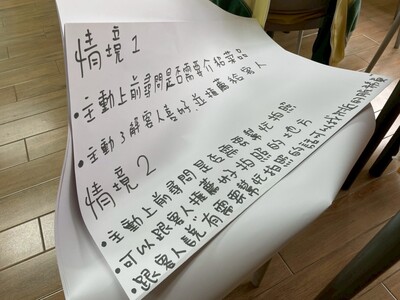 情境1
•主動上前尋問是否需要介紹菜品
•主動了解客人喜好,並推薦給客人
情境2
•主動上前尋問是否需要幫忙拍照
•可以跟客人推薦好拍照的地方
•跟客人說有需要幫忙拍照的話可以找附近的服務